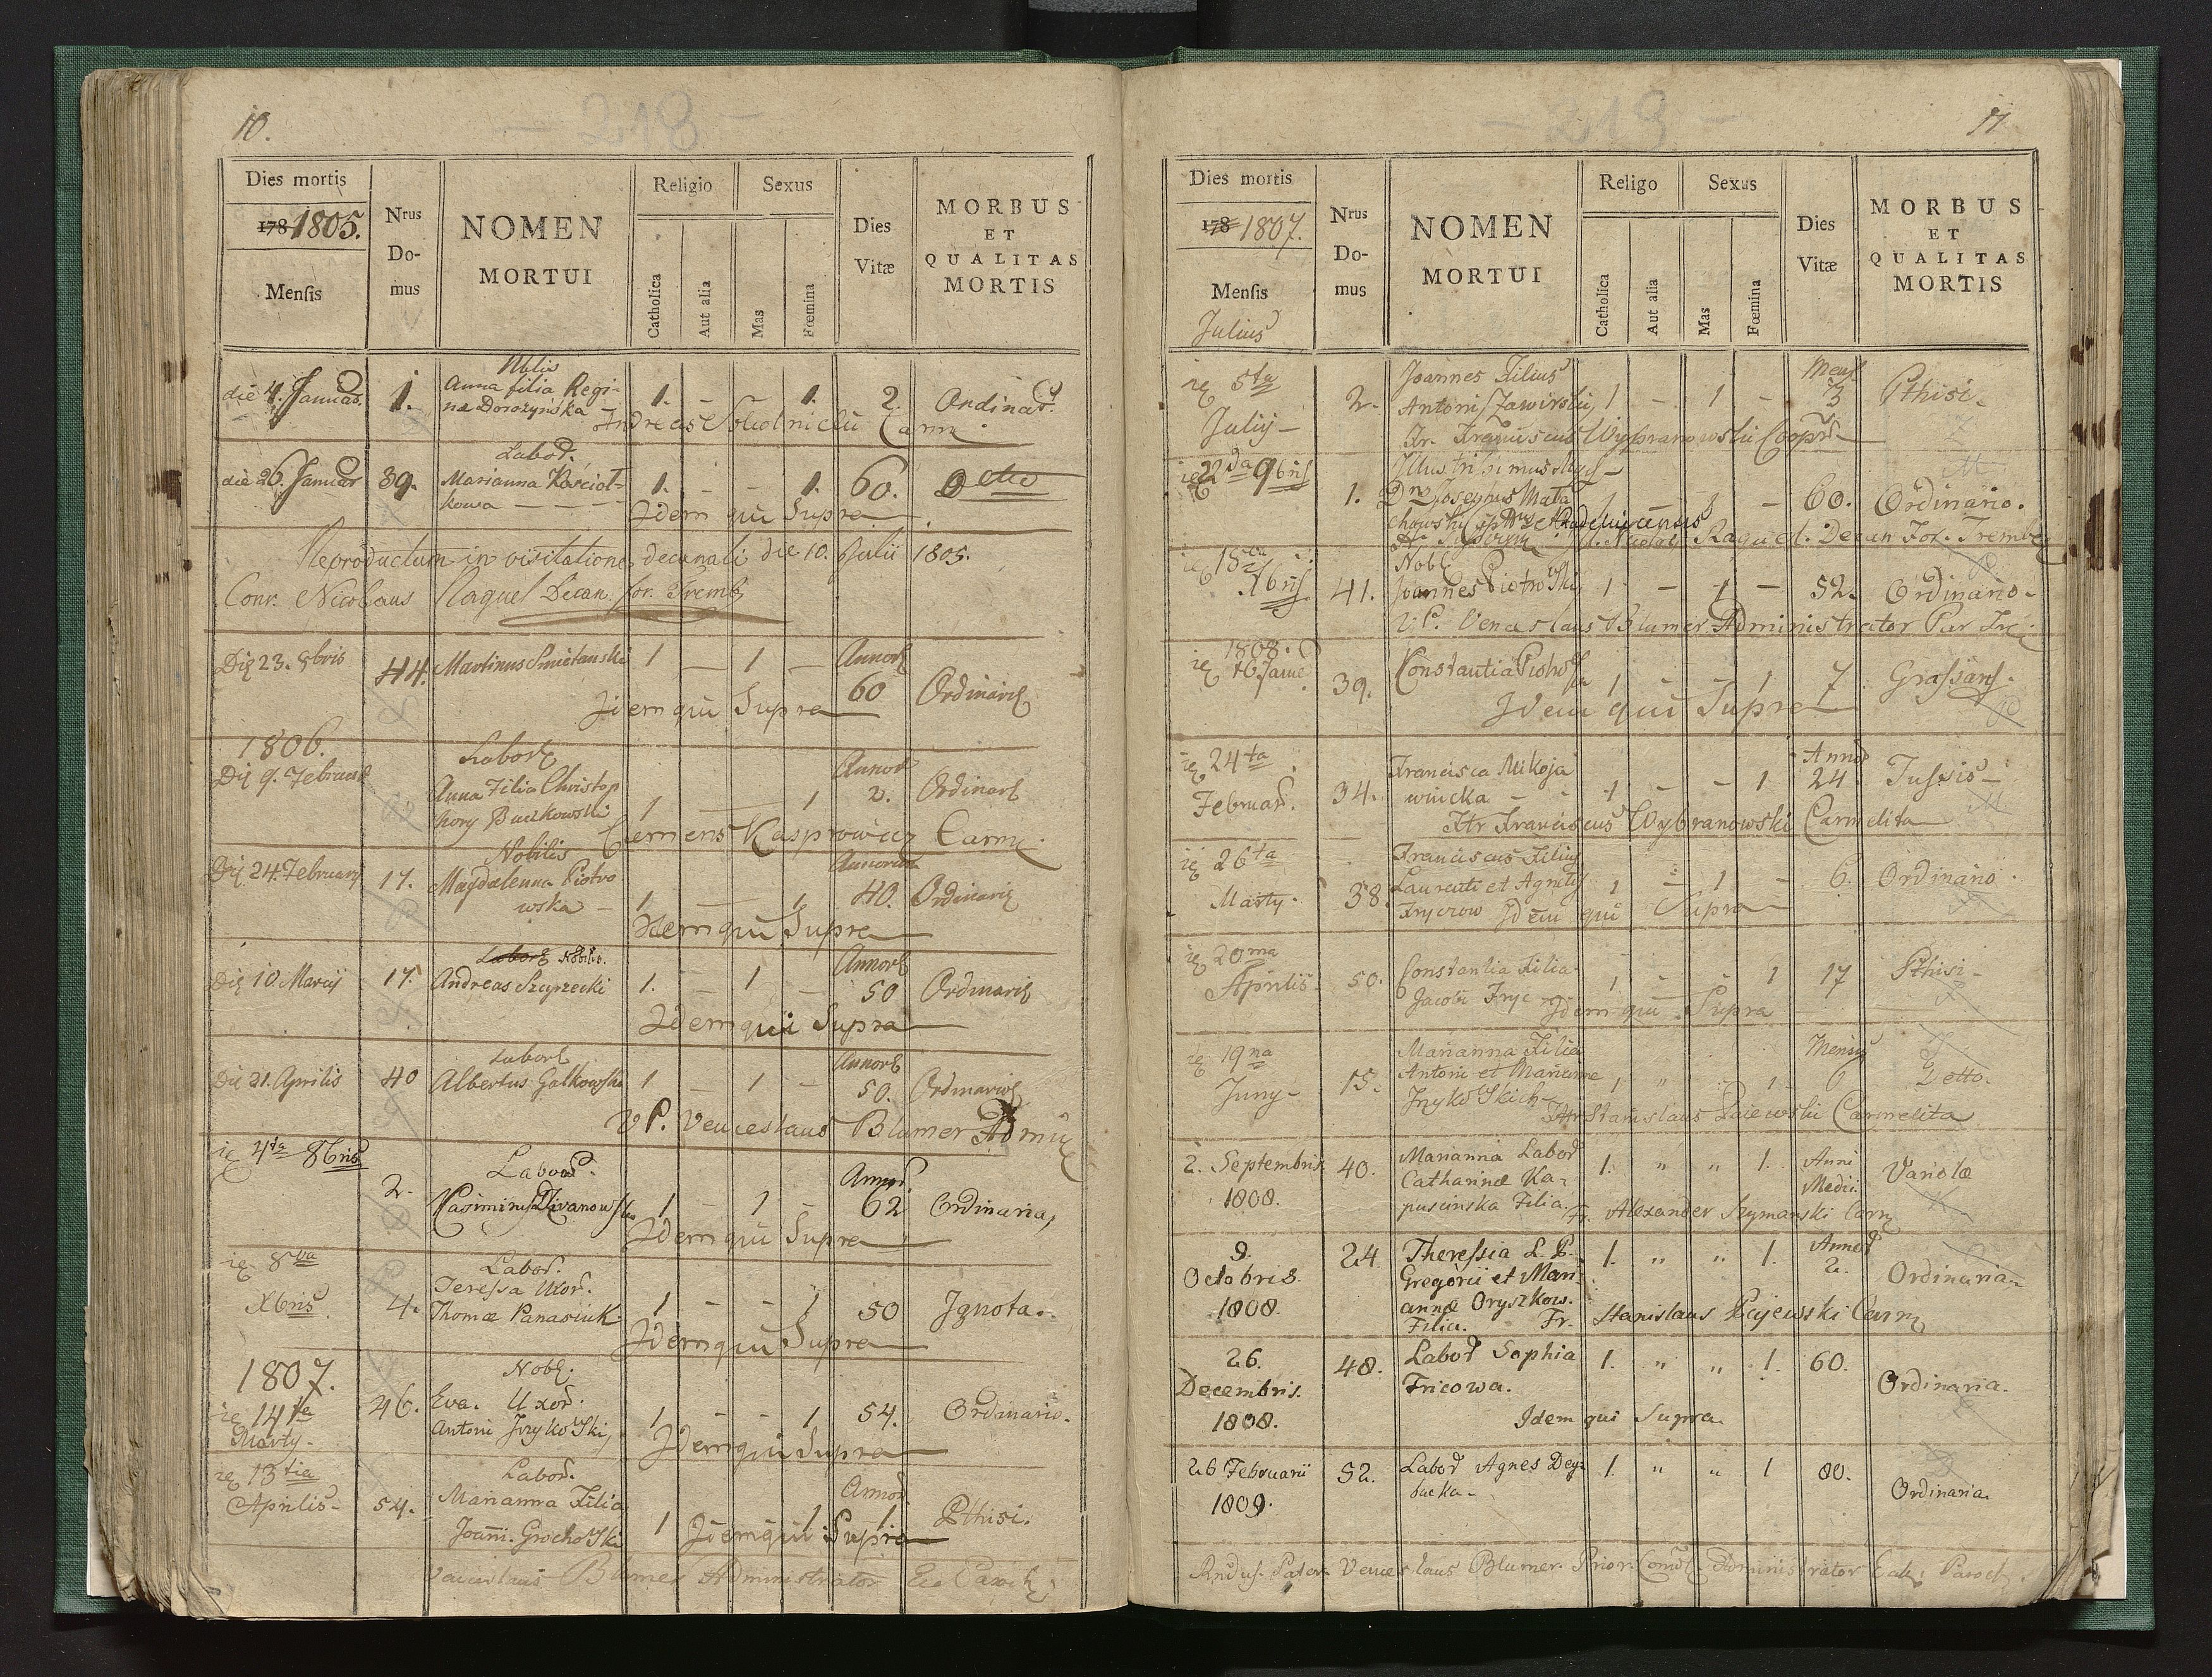 10.
- 218 -
Dies mortis
1781805.
Mensis
Nrus Do- mus
NOMEN
MORTUI
Religio
Catholica
Aut alia
Sexus
Mas
Fœmina
Dies
Vitæ
MORBUS
ET
QUALITAS
MORTIS
Nblis
die 4. Januar. 1. Anna filia Regi- 1. - - 1. 2. Ordinar.
næ Dorożyńska
Andreas Carm.
Labor.
die 26. Januar 39. Marianna Kościoł- 1. - - 1. 60. Detto
kowa - - -
Idem qui Supra
Reproductum in visitatione decanali die 10. Julii 1805.
Nicolaus Raquel Decan. for. Tremb.
Die 23. 9bris 44. Martinus Smietanski 1 - 1 - Annor
60 Ordinaria
Idem qui Supra
1806.
Labor
Die 9. Februar Anna Filia Christop 1 - 1 Annor 2. Ordinar
hory Buckowski
Clemens Kasprowicz Carm.
Nobilis
Die 24. February 17. Magdalenna Piotro 1 - 1 Annorum 40. Ordinaria
wska -
Idem qui Supra
Labor Nobilis.
Die 10 Marcij 17. Andreas Szyrzecki 1. - 1 - Annor 50 Ordinaria
Idem qui Supra
Labor
Die 21. Aprilis 40 Albertus Galkowski 1 - 1 - Annor 50. Ordinaria
V P. Venceslaus Blumer
ie 4ta 8bris
Labor.
2. 1 - 1 - Annor. 62 Ordinaria
Idem qui Supra
ie 8va
Xbris
Labor.
4. Teressa Uxor. 1 - - 1 50 Ignota.
Thomæ Panasiuk
Idem qui Supra
1807.
ie 14ta
Marty.
Nobl.
46. Eva. Uxor. 1 - - 1 54. Ordinario.
Antoni
Idem qui Supra
ie 13tia
Aprilis -
Labor.
54. Marianna Filia 1 1 Annor. 1 Pthisi.
Joanni. Grochoski
Idem qui Supra
Venceslaus Blumer Administrator
17
- 219 -
Dies mortis
178 1807.
Mensis
Julius
Nrus Do- mus
NOMEN
MORTUI
Religo
Catholica
Aut alia
Sexus
Mas
Fœmina
Dies
Vitæ
MORBUS
ET
QUALITAS
MORTIS
ie 5ta
Julij -
2. Joannes Filius 1 - 1 - Mens 3 Pthisi.
Antoni Zawirski
Fr. Franciscus Wybranowski
ie 22da 9bris
1. Illustrisimus
Dns Josephus Mala 1 - 60. Ordinario.
chowski
Raquel. Decan For. Tremb
ie 15ta
Xbris
Nobl
41. Joannes Piotroski 1 - 1 - 52. Ordinario -
V. P. Venceslaus Blumer Administrator Par
1808.
ie 16 Janu
39. Constantia 1 - - 1 7 Grassans.
Idem qui Supra
ie 24ta
Februar.
34. Francisca Mikoja 1 - - 1 Annor 24 Tussis -
wincka - -
Ftr Franciscus Wybranowski Carmelita
ie 26ta
Marty.
38. Franciscus Filius
Laurenti et Agnetis 1 - 1 - 6. Ordinario.
Idem qui Supra
ie 20ma
Aprilis -
50. Constantia Filia 1 - - 1 17 Pthisi -
Jacobi Fryc
Idem qui Supra
ie 19na
Juny -
15. Marianna Filia
Antoni et Marianne 1 " - 1 Mensis 6 Detto.
Ftr Stanislaus Carmelita
2. Septembris 40. Marianna Labor 1. " " 1. Anni Variolæ
1808. Catharinæ Ka- Medii.
puscinska Filia. Fr. Alexander Szymanski Carm
9. 24. Theressia L. P. 1. " " 1. Annor 2. Ordinaria -
Octobris. Gregorii et Mari
1808. annæ Oryszkow.
Filia. Fr. Stanislaus Carm
26. 48. Labor Sophia 1. " " 1. 60. Ordinaria.
Decembris. Fricowa.
1808. Idem qui Supra.
26 Februarii 52. Labor Agnes 1. " " 1 80. Ordinaria.
1809.
Pater Venceslaus Blumer Prior Administrator Paroch.